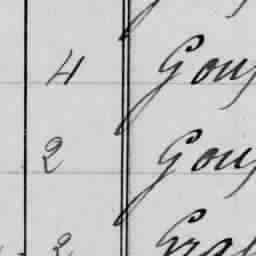 4 Gou
2 Gou
2 Gra